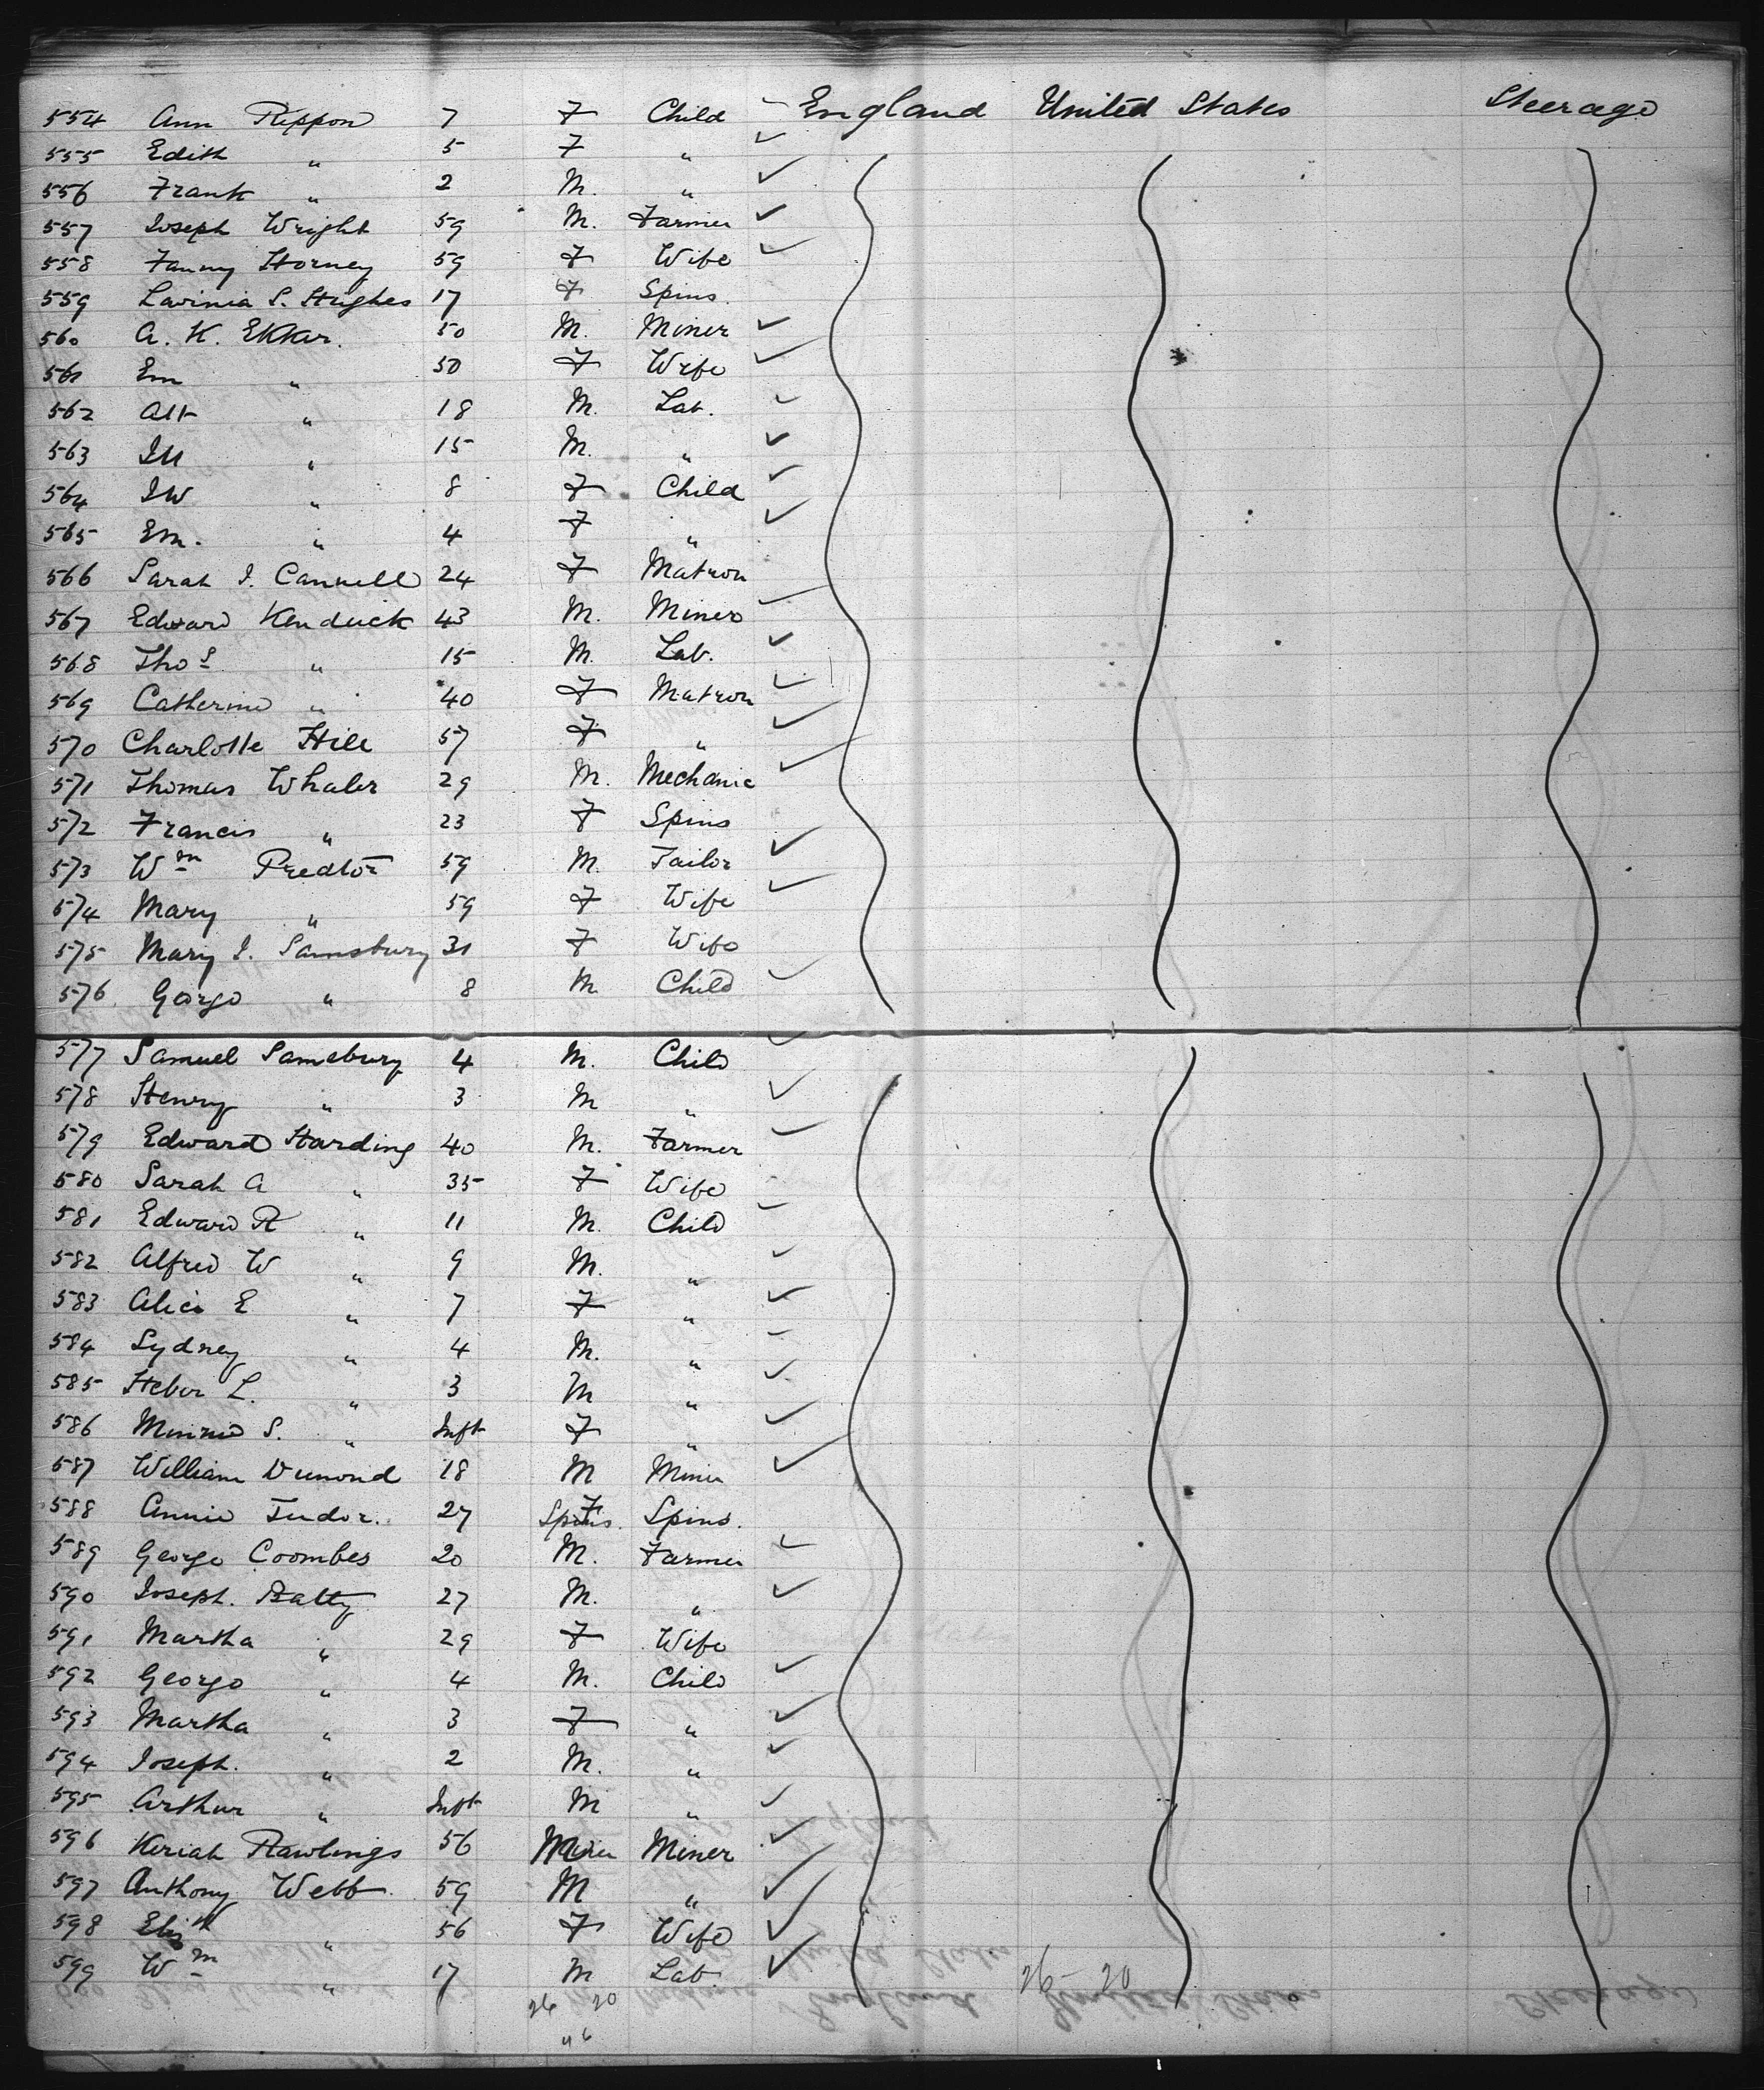 554 Ann Rippon 7 F Child England United States Steerage
555 Edith " 5 F "
556 Frank " 2 M. "
557 Joseph Wright 59 M. Farmer
558 Fanny Horney 59 F Wife
559 Lavinia S. Hughes 17 F Spins.
560 A. K. Ekker. 50 M. Miner
561 Em " 50 F Wife
562 Alt " 18 M. Lab.
563 " 15 M. "
564 " 8 F Child
565 Em. " 4 F "
566 Sarah J. Cannell 24 F Matron
567 Edward Kendrick 43 M. Miner
568 Thos " 15 M. Lab.
569 Catherine " 40 F Matron
570 Charlotte Hill 57 F "
571 Thomas Whaler 29 M. Mechanic
572 Francis " 23 F Spins
573 Wm 59 M. Tailor
574 Mary " 59 F Wife
575 Mary J. Samsbury 31 F Wife
576 George " 8 M Child
577 Samuel Samsbury 4 M. Child
578 Henry " 3 M "
579 Edward Harding 40 M. Farmer
580 Sarah A " 35 F Wife
581 Edward R " 11 M. Child
582 Alfred W " 9 M. "
583 Alice E " 7 F "
584 Sydney " 4 M. "
585 Heber L. " 3 M "
586 Minnie S. " Inft F "
587 William Dimond 18 M Miner
588 Annie Tudor. 27 F Spins.
589 George Coombes 20 M. Farmer
590 Joseph. Batty 27 M. "
591 Martha " 29 F Wife
592 George " 4 M. Child
593 Martha " 3 F "
594 Joseph. " 2 M. "
595 Arthur " Inft M "
596 Keriah Rawlings 56 M Miner
597 Anthony Webb 59 M "
598 Elizth " 56 F Wife
599 Wm " 17 M Lab.
26 20 26 - 20
46